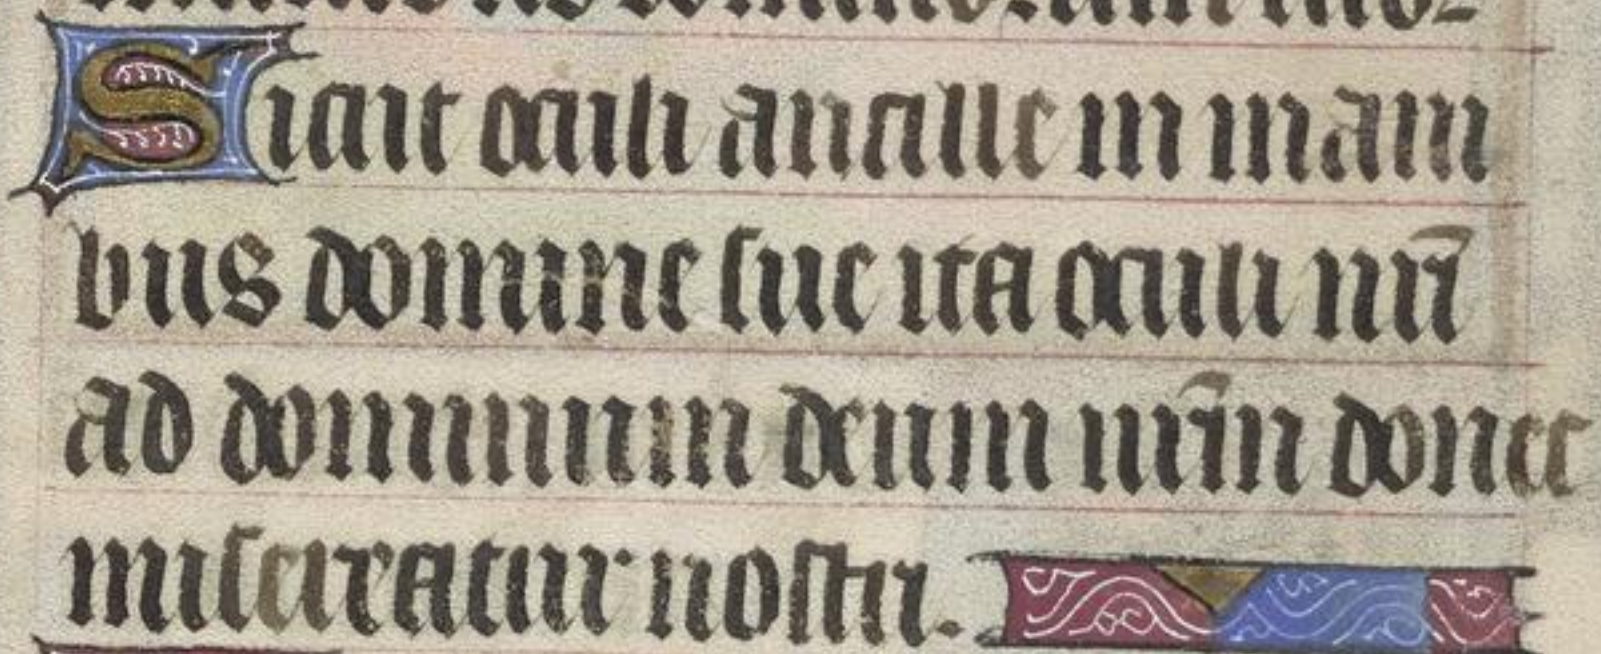 Sicut oculi ancille in mani
bus domine sue ita oculi nr̄i
ad dominum deum nr̄m donec
misereatur nostri.